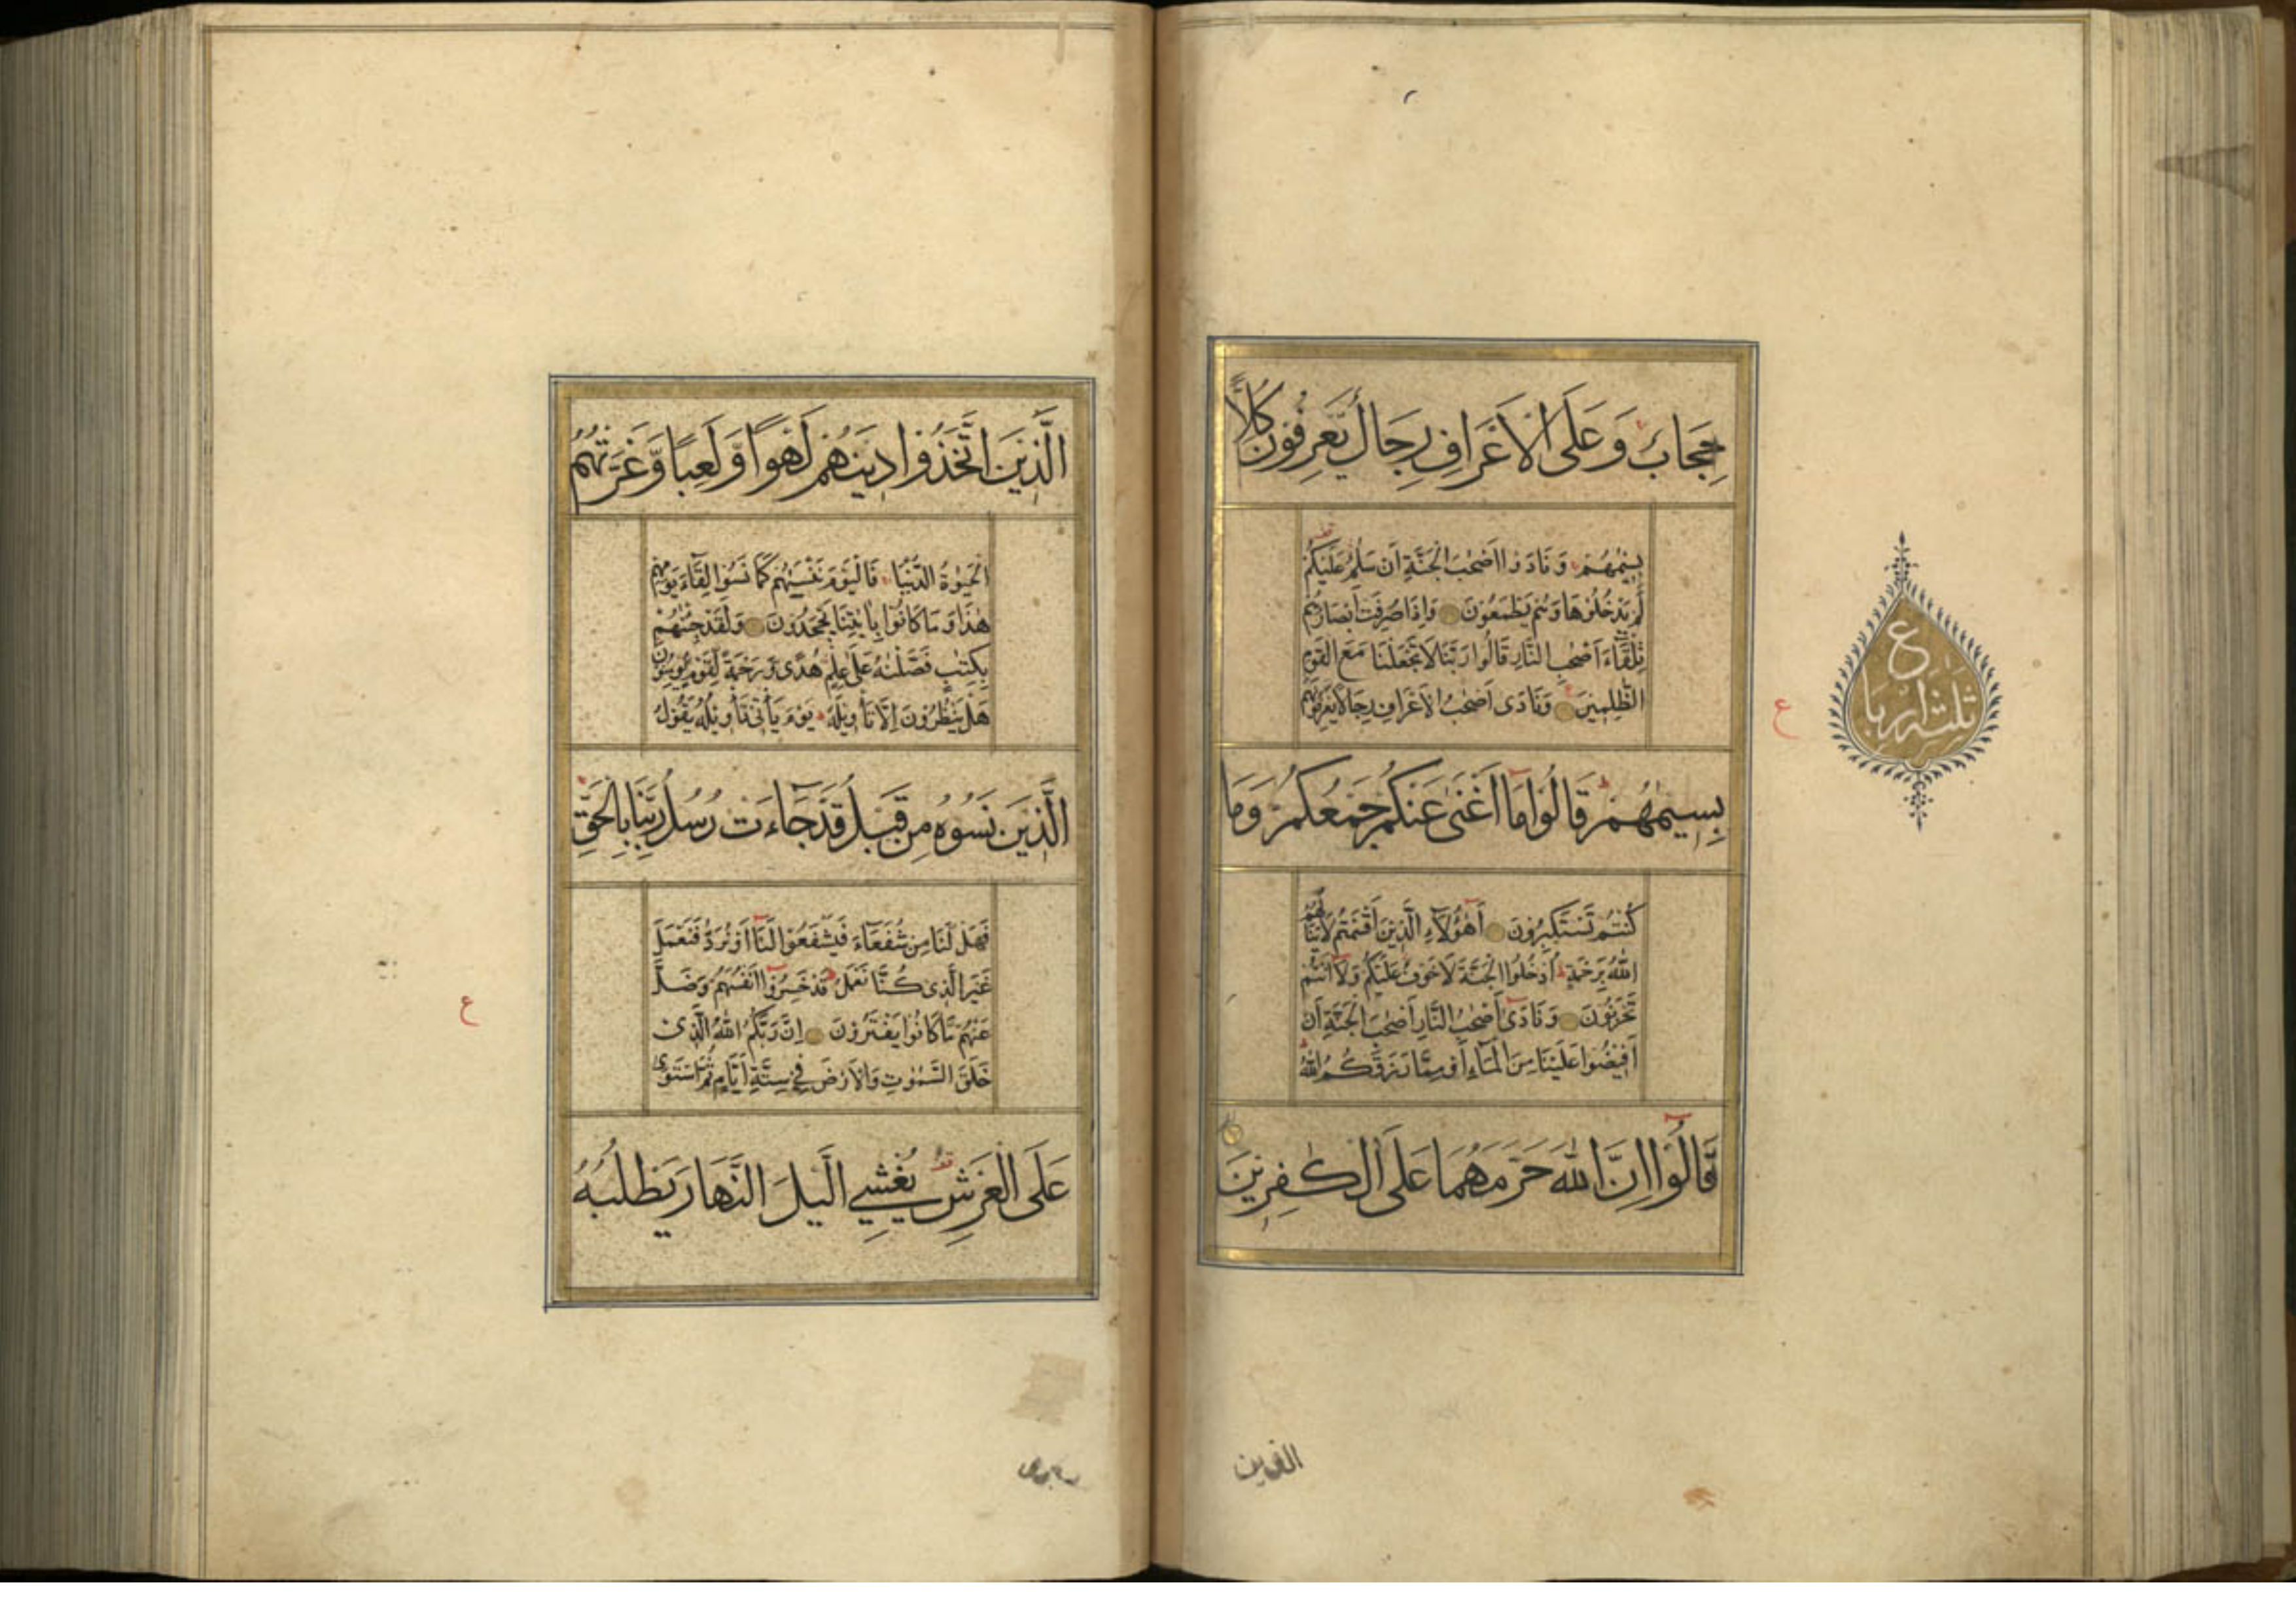 حِجَابٌ وَعَلَى الْاَعْرَافِ رِجَالٌ يَعْرِفُونَ كُلًّا
بِسِيْمٰهُمْ وَنَادَوْا اَصْحٰبَ الْجَنَّةِ اَنْ سَلٰمٌ عَلَيْكُمْ
لَمْ يَدْخُلُوْهَا وَهُمْ يَطْمَعُوْنَ وَاِذَا صُرِفَتْ اَبْصَارُهُمْ
تِلْقَآءَ اَصْحٰبِ النَّارِ قَالُوْا رَبَّنَا لَا تَجْعَلْنَا مَعَ الْقَوْمِ
الظّٰلِمِيْنَ وَنَادٰى اَصْحٰبُ الْاَعْرَافِ رِجَالًا يَعْرِفُوْنَهُمْ
بِسِيمٰهُمْ قَالُوْا مَا اَغْنٰى عَنْكُمْ جَمْعُكُمْ وَمَا
كُنْتُمْ تَسْتَكْبِرُوْنَ اَهٰؤُلَآءِ الَّذِيْنَ اَقْسَمْتُمْ لَا يَنَالُهُمُ
اللّٰهُ بِرَحْمَةٍ اُدْخُلُوا الْجَنَّةَ لَا خَوْفٌ عَلَيْكُمْ وَلَا اَنْتُمْ
تَحْزَنُوْنَ وَنَادٰى اَصْحٰبُ النَّارِ اَصْحٰبَ الْجَنَّةِ اَنْ
اَفِيْضُوْا عَلَيْنَا مِنَ الْمَآءِ اَوْ مِمَّا رَزَقَكُمُ اللّٰهُ
قَالُوْا اِنَّ اللّٰهَ حَرَّمَهُمَا عَلَى الْكٰفِرِيْنَ
ع
ثلثة ارباع
ع
الَّذِيْنَ اتَّخَذُوْا دِيْنَهُمْ لَهْوًا وَّلَعِبًا وَّغَرَّتْهُمُ
الْحَيٰوةُ الدُّنْيَا فَالْيَوْمَ نَنْسٰيهُمْ كَمَا نَسُوْا لِقَآءَ يَوْمِهِمْ
هٰذَا وَمَا كَانُوْا بِاٰيٰتِنَا يَجْحَدُوْنَ وَلَقَدْ جِئْنٰهُمْ
بِكِتٰبٍ فَصَّلْنٰهُ عَلٰى عِلْمٍ هُدًى وَّرَحْمَةً لِّقَوْمٍ يُّؤْمِنُوْنَ
هَلْ يَنْظُرُوْنَ اِلَّا تَأْوِيْلَهُ يَوْمَ يَأْتِيْ تَأْوِيْلُهُ يَقُوْلُ
الَّذِيْنَ نَسُوْهُ مِنْ قَبْلُ قَدْ جَآءَتْ رُسُلُ رَبِّنَا بِالْحَقِّ
فَهَلْ لَّنَا مِنْ شُفَعَآءَ فَيَشْفَعُوْا لَنَا اَوْ نُرَدُّ فَنَعْمَلَ
غَيْرَ الَّذِيْ كُنَّا نَعْمَلُ قَدْ خَسِرُوْا اَنْفُسَهُمْ وَضَلَّ
عَنْهُمْ مَّا كَانُوْا يَفْتَرُوْنَ اِنَّ رَبَّكُمُ اللّٰهُ الَّذِيْ
خَلَقَ السَّمٰوٰتِ وَالْاَرْضَ فِيْ سِتَّةِ اَيَّامٍ ثُمَّ اسْتَوٰى
عَلَى الْعَرْشِ يُغْشِي الَّيْلَ النَّهَارَ يَطْلُبُهُ
ع